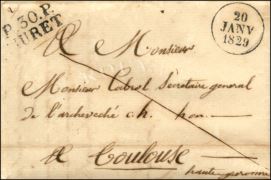 P.30.P.
MURET
20
JANV
1829
A Monsieur
Monsieur Cabrol Secretaire general
de l'archeveché ch. hon
A Toulouse
haute garonne